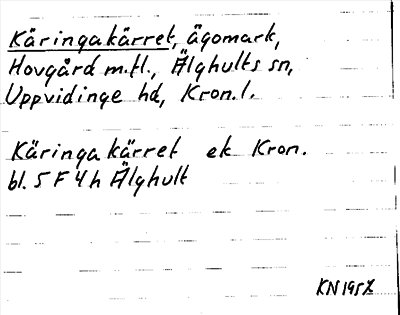 Käringakärret, ägomark,
Hovgård m.fl., Älghults sn,
Uppvidinge hd, Kron.l.
Käringakärret ek Kron.
bl. 5 F 4 h Älghult